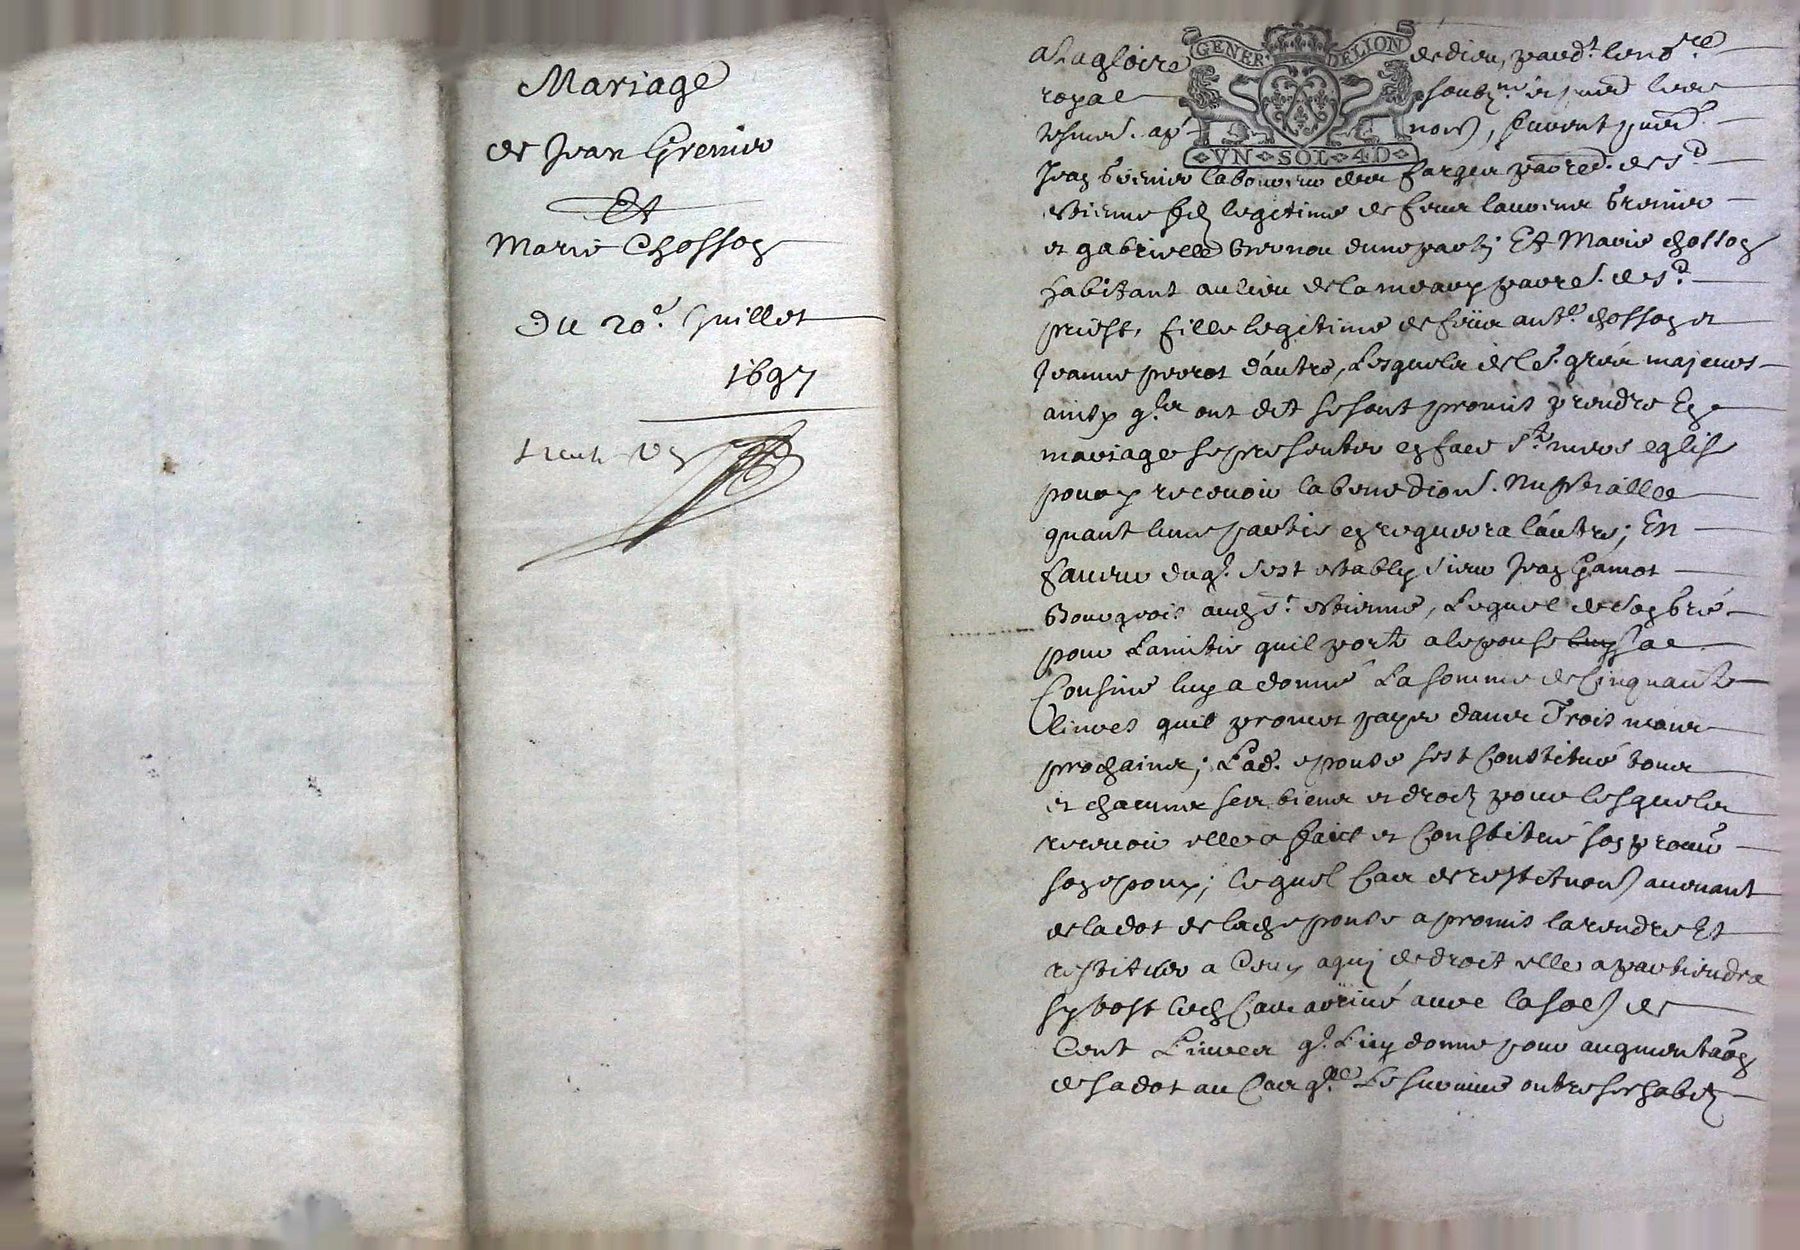 Mariage
de Jean Grenier
Et
Marie Chosson
Du 20e. Juillet
1697
GENER. DE LION
VN SOL 4D
A la gloire de dieu, pardt. le nore
royal soubzné et pnts les
tesmoins apnomés, furent pnts
Jean Grenier laboureur des farges parred. de st
estienne filz legitime de feus laurens Grenier
et gabrielle d'une part; Et Marie chosson
habitant au lieu de la parre. de st
priest, fille legitime de feus anth. chosson et
Jeanne perrot d'autre, Lesquels de le. grés majeurs
ainsy q.ls ont dit se sont promis prendre En
mariage se presenter en face ste mere eglise
pour y recevoir la benedion. nuptialle
quant l'une partie en requerra l'autre; En
faveur duq.l s'est estably sieur Jean Gamot
Bourgeois audt st. estienne, Lequel de son gré
pour L'amitié quil porte a l'epouse luy sa
Cousine luy a donné La somme de Cinquante
livres quil promet payer dans Trois mois
prochains; Lad. epouse s'est Constitué tous
et chacuns ses biens et droitz pour lesquels
recevoir elle a faict et Constitué son procur
son epoux; lequel Cas de restituon avenant
de la dot de lade epouse a promis la rendre Et
restituer a Ceux a qui de droit elle apartiendra
sy tost led Cas arrivé avec la soe de
Cent Livres q.l Luy donne pour augmentaon
de sa dot au Cas q.lle Le survive outre ses habitz